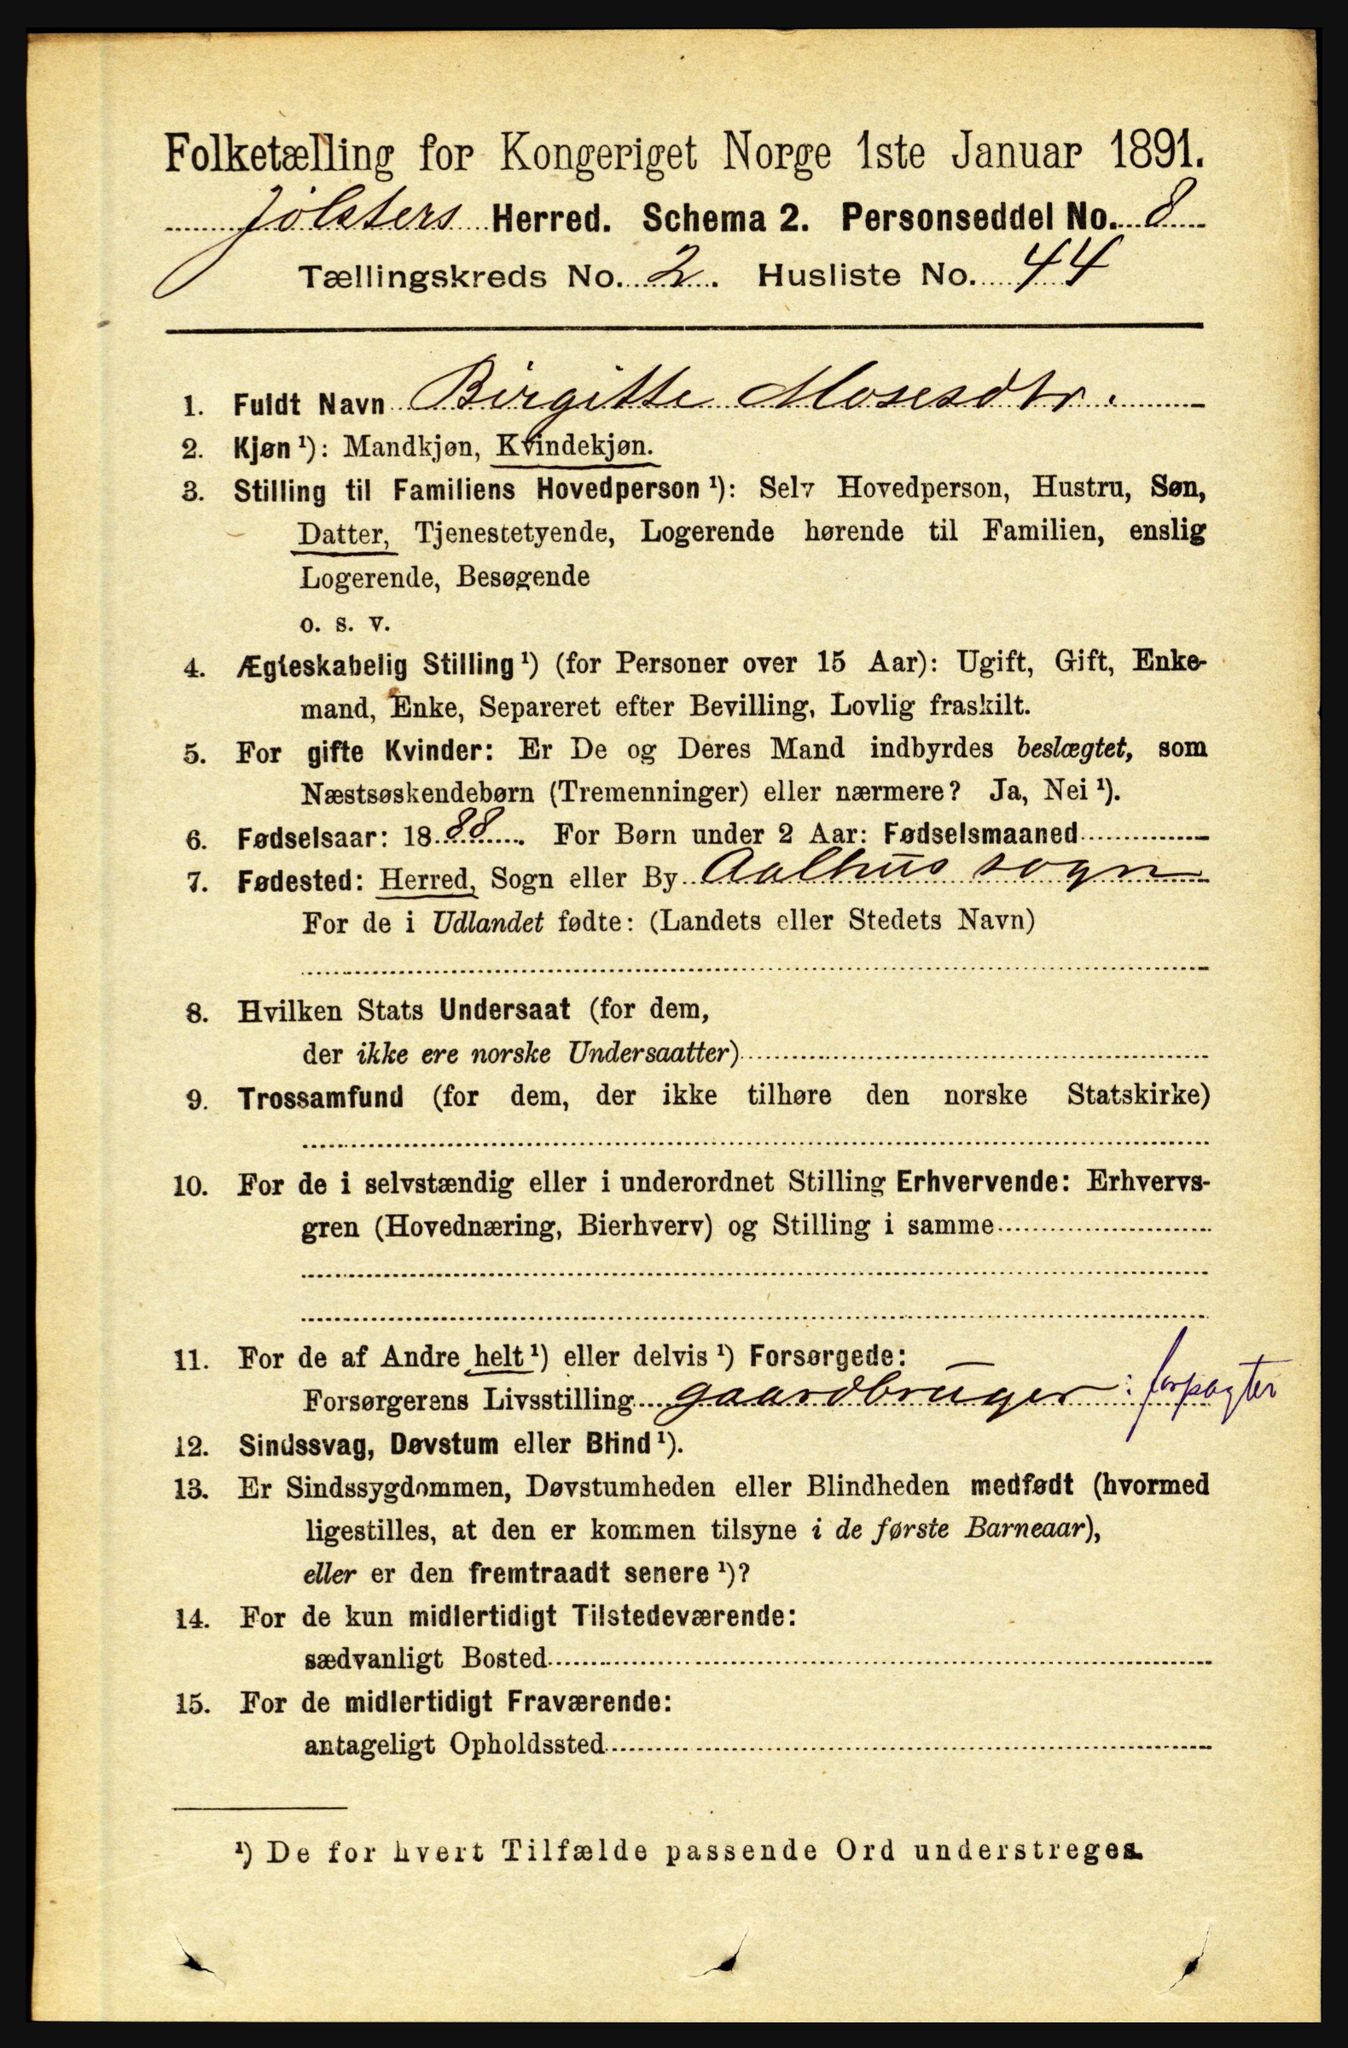 Folketælling for Kongeriget Norge 1ste Januar 1891.
Jølsters Herred. Schema 2. Personseddel No. 8
Tællingskreds No. 2. Husliste No. 44
1. Fuldt Navn Birgitte Mosesdtr.
2. Kjøn ¹): Mandkjøn, Kvindekjøn.
3. Stilling til Familiens Hovedperson ¹): Selv Hovedperson, Hustru, Søn,
Datter, Tjenestetyende, Logerende hørende til Familien, enslig
Logerende, Besøgende
o. s. v.
4. Ægteskabelig Stilling ¹) (for Personer over 15 Aar): Ugift, Gift, Enke-
mand, Enke, Separeret efter Bevilling, Lovlig fraskilt.
5. For gifte Kvinder: Er De og Deres Mand indbyrdes beslægtet, som
Næstsøskendebørn (Tremenninger) eller nærmere? Ja, Nei ¹).
6. Fødselsaar: 1888. For Børn under 2 Aar: Fødselsmaaned
7. Fødested: Herred, Sogn eller By Aalhus sogn
For de i Udlandet fødte: (Landets eller Stedets Navn)
8. Hvilken Stats Undersaat (for dem,
der ikke ere norske Undersaatter)
9. Trossamfund (for dem, der ikke tilhøre den norske Statskirke)
10. For de i selvstændig eller i underordnet Stilling Erhvervende: Erhvervs-
gren (Hovednæring, Bierhverv) og Stilling i samme
11. For de af Andre helt ¹) eller delvis ¹) Forsørgede:
Forsørgerens Livsstilling gaardbruger: forpagter
12. Sindssvag, Døvstum eller Blind ¹).
13. Er Sindssygdommen, Døvstumheden eller Blindheden medfødt (hvormed
ligestilles, at den er kommen tilsyne i de første Barneaar),
eller er den fremtraadt senere ¹)?
14. For de kun midlertidigt Tilstedeværende:
sædvanligt Bosted
15. For de midlertidigt Fraværende:
antageligt Opholdssted
¹) De for hvert Tilfælde passende Ord understreges.